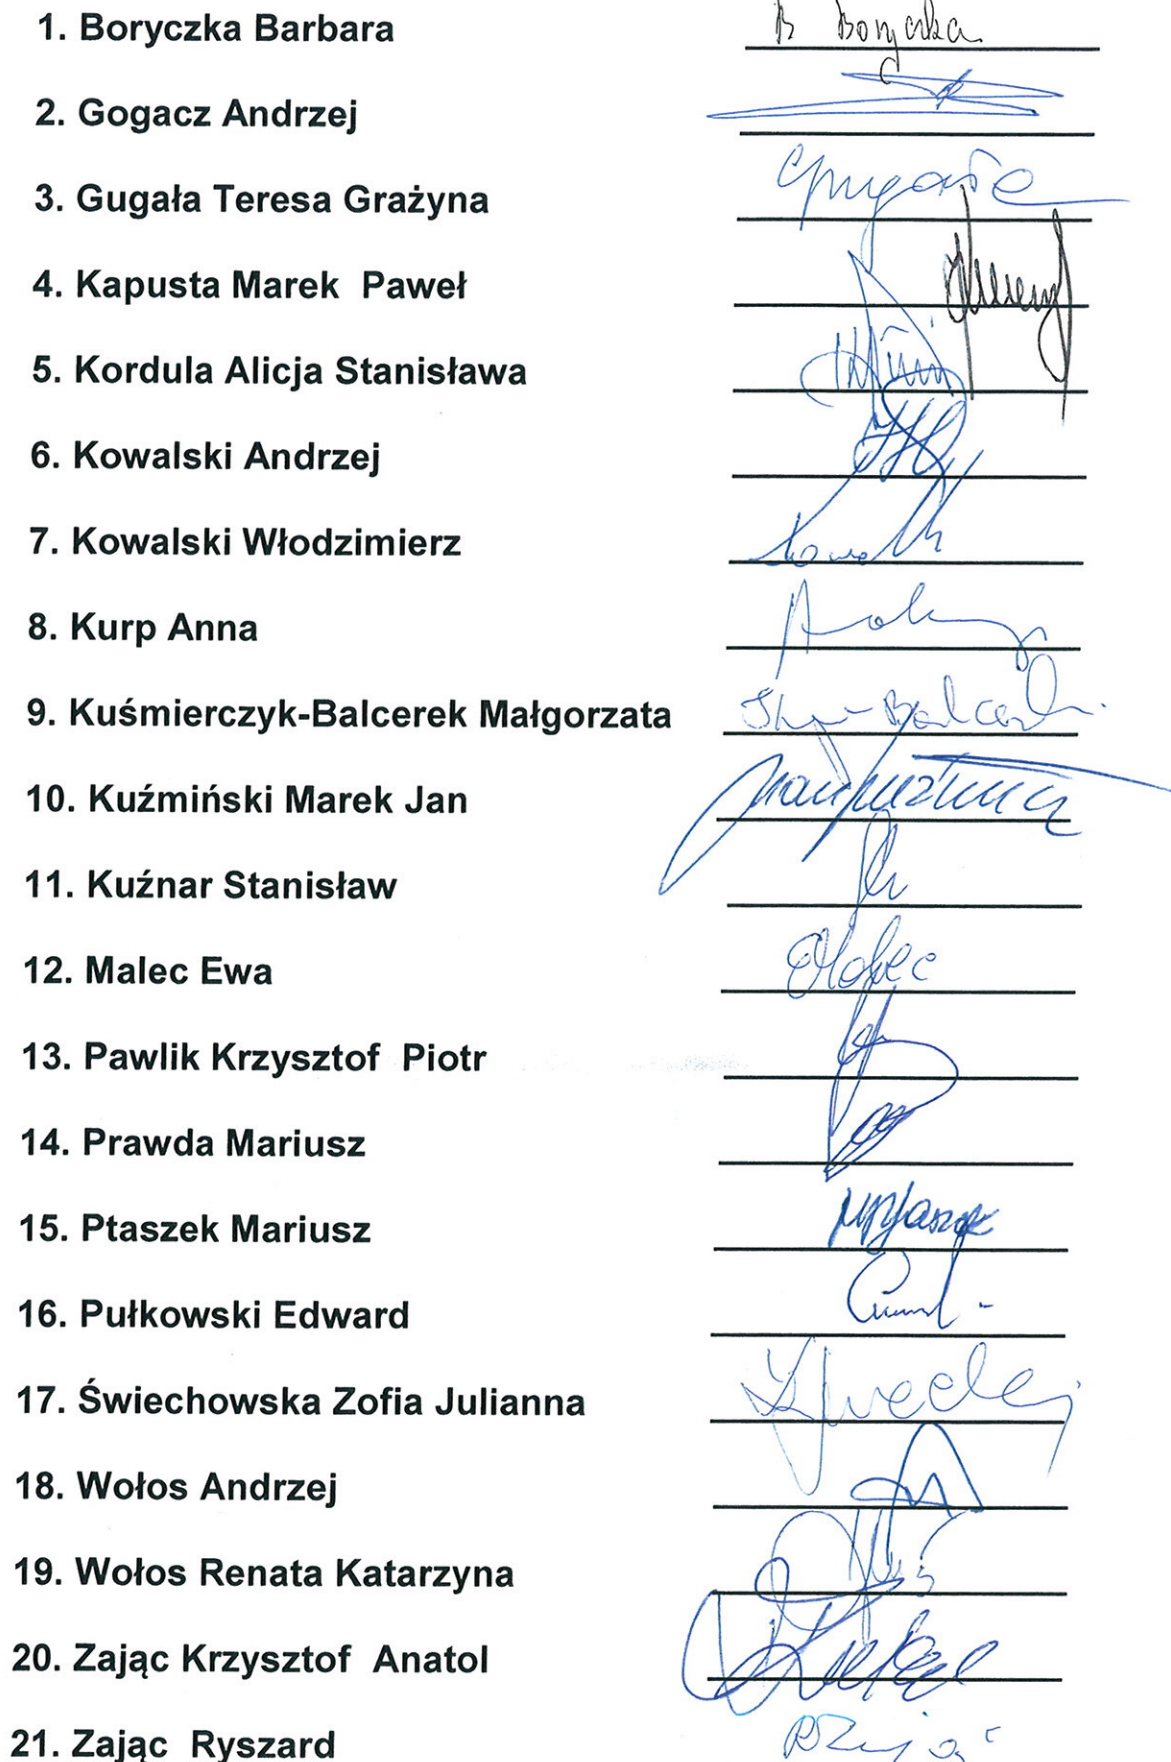 1. Boryczka Barbara B Boryczka
2. Gogacz Andrzej
3. Gugała Teresa Grażyna Gugała
4. Kapusta Marek  Paweł
5. Kordula Alicja Stanisława
6. Kowalski Andrzej
7. Kowalski Włodzimierz
8. Kurp Anna
9. Kuśmierczyk-Balcerek Małgorzata
10. Kuźmiński Marek Jan
11. Kuźnar Stanisław
12. Malec Ewa EMalec
13. Pawlik Krzysztof  Piotr
14. Prawda Mariusz
15. Ptaszek Mariusz MPtaszek
16. Pułkowski Edward
17. Świechowska Zofia Julianna
18. Wołos Andrzej
19. Wołos Renata Katarzyna
20. Zając Krzysztof  Anatol
21. Zając  Ryszard RZając